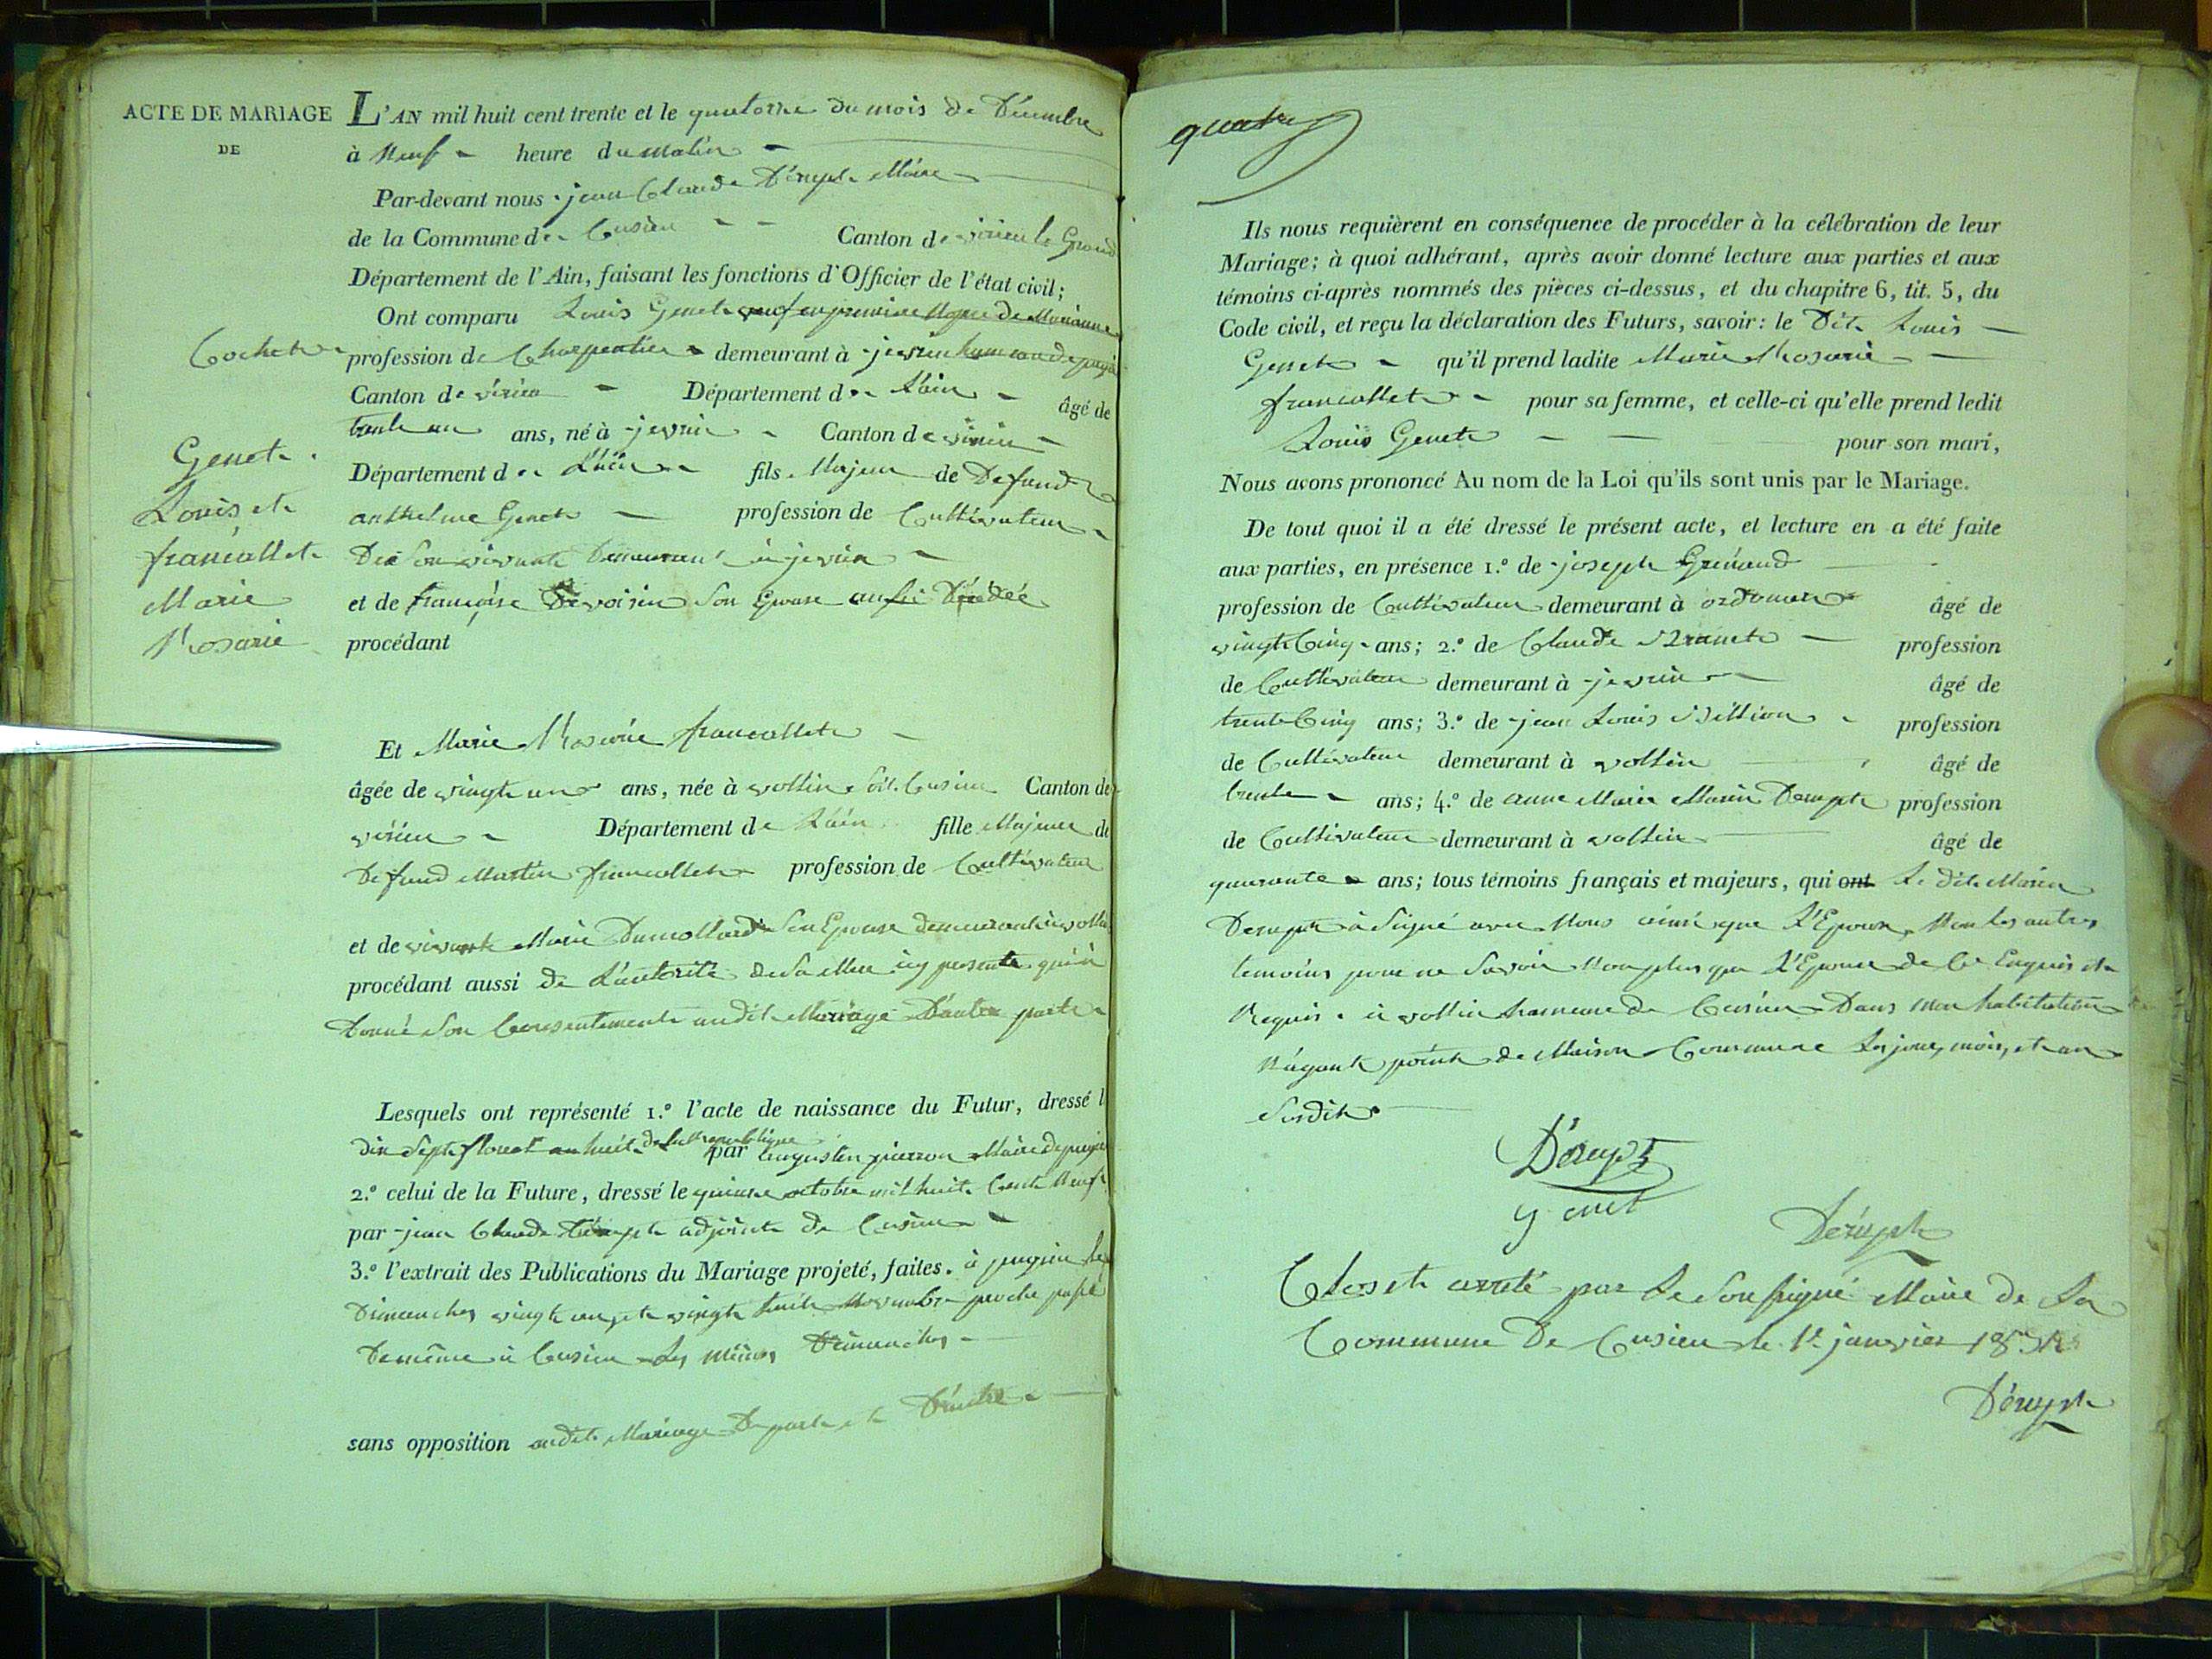 ACTE DE MARIAGE
DE
Genet
Louis et
francallet
Marie
Rosarie
L'AN mil huit cent trente et le quatorze du mois de Décembre
à Neuf heure du matin
Par-devant nous jean Claude Dérupt Maire
de la Commune de Cuzieu Canton de virieu le Grand
Département de l'Ain, faisant les fonctions d'Officier de l'état civil;
Ont comparu Louis Genet veuf en premiere Noce de Marianne
Cochet profession de Charpentier demeurant à jevrin hameau de pugieu
Canton de virieu Département de L'ain âgé de
trente un ans, né à jevrin Canton de virieu
Département de L'ain fils Majeur de Defund
anthelme Genet profession de Cultivateur
De son vivant Demeurant à jevrin
et de françoise Devoisin son Epouse aussi Décédée
procédant
Et Marie Rosarie francallet
âgée de vingt un ans, née à vollin Cuzieu Canton de
virieu Département de L'ain fille Majeure de
Defund Martin francallet profession de Cultivateur
et de vivante Marie Dumollard son Epouse demeurante à vollin
procédant aussi de L'autorité de Sa Mere icy presente qui à
Donné Son Consentement audit Mariage D'autre part
Lesquels ont représenté 1.º l'acte de naissance du Futur, dressé l
dix Sept floreal an huit de la republique par augustin pierron Maire de pugieu
2.º celui de la Future, dressé le quinze octobre mil huit Cent Neuf
par jean Claude Dérupt adjoint de Cuzieu
3.º l'extrait des Publications du Mariage projeté, faites. à pugieu les
Dimanches vingt un et vingt huit Novembre proche passé
De même à Cuzieu les mêmes Dimanches
sans opposition audit Mariage De part et D'autre
quatre
Ils nous requièrent en conséquence de procéder à la célébration de leur
Mariage; à quoi adhérant, après avoir donné lecture aux parties et aux
témoins ci-après nommés des pièces ci-dessus, et du chapitre 6, tit. 5, du
Code civil, et reçu la déclaration des Futurs, savoir: le Dit Louis
Genet qu'il prend ladite Marie Rosarie
francallet pour sa femme, et celle-ci qu'elle prend ledit
Louis Genet pour son mari,
Nous avons prononcé Au nom de la Loi qu'ils sont unis par le Mariage.
De tout quoi il a été dressé le présent acte, et lecture en a été faite
aux parties, en présence 1.º de joseph Grinand
profession de Cultivateur demeurant à âgé de
vingt Cinq ans; 2.º de Claude profession
de Cultivateur demeurant à jevrin âgé de
trente Cinq ans; 3.º de jean Louis Billion profession
de Cultivateur demeurant à vollin âgé de
trente ans; 4.º de anne Marie Marin Derupt profession
de Cultivateur demeurant à vollin âgé de
quarante ans; tous témoins français et majeurs, qui ont Le dit Marin
Derupt à Signé avec Nous ainsi que L'Epoux, Non les autres
temoins pour ne Savoir Non plus que L'Epouse de Ce Enquis et
Requis. à vollin hameau de Cuzieu Dans mon habitation
N'ayant point de Maison Commune Les jour, mois, et an
Susdit
Dérupt
genet
Derupt
Clos et arreté par Le Soussigné Maire de La
Commune De Cuzieu le 1er janvier 1831
Dérupt